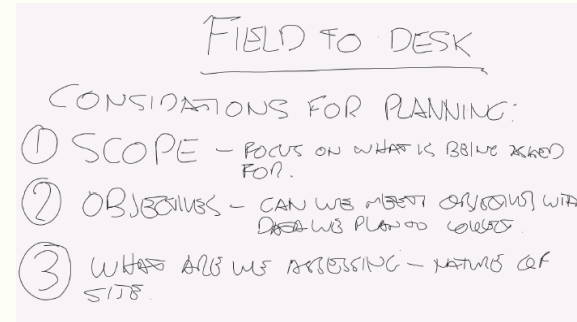 FIELD TO DESK
CONSIDATIONS FOR PLANNING:
① SCOPE – FOCUS ON WHAT IS BEING ASKED
FOR.
② OBJECTIVES – CAN WE MEET OBJECTIVES WITH
DATA WE PLAN TO COLLECT.
③ WHAT ARE WE ASSESSING – NATURE OF
SITE.